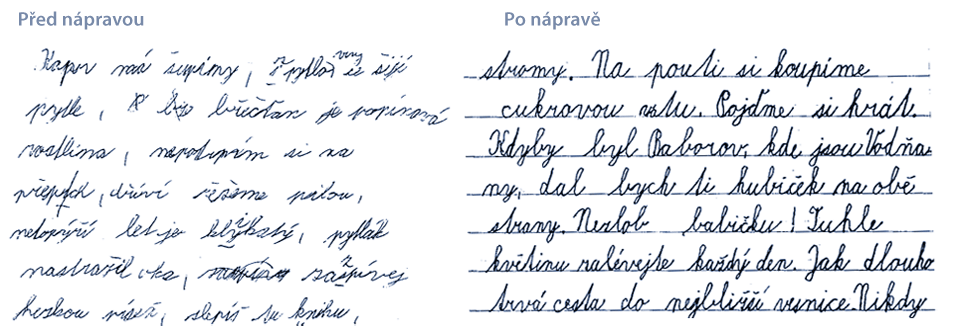 Před nápravou
Kapr má šupiny, z pytlo viny se šijí
pytle, břečťan je popínavá
rostlina, nepotrpím si na
přepych, dříví řežeme pilou,
netopýří let je klikatý, pytlák
nastražil oka, zazpívej
hezkou píseň, slepíš tu knihu,
Po nápravě
stromy. Na pouti si koupíme
cukrovou vatu. Pojďme si hrát.
Kdyby byl Baborov, kde jsou Vodňa
ny, dal bych ti hubiček na obě
strany. Nezlob babičku! Tuhle
květinu zalévejte každý den. Jak dlouho
trvá cesta do nejbližší vesnice. Nikdy